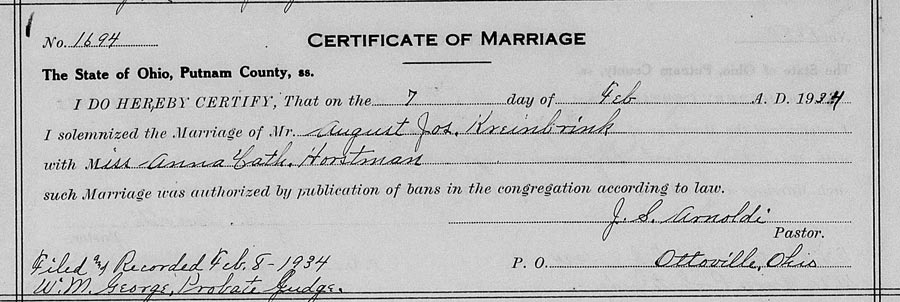 No. 1694 CERTIFICATE OF MARRIAGE
The State of Ohio, Putnam County, ss.
I DO HEREBY CERTIFY, That on the 7 day of Feb A. D. 1934
I solemnized the Marriage of Mr. August Jos. Kreinbrink
with Miss Anna Cath. Horstman
such Marriage was authorized by publication of bans in the congregation according to law.
J. S. Arnoldi
Pastor.
Filed & Recorded Feb. 8 - 1934 P. O. Ottoville, Ohio
W. M. George, Probate Judge.